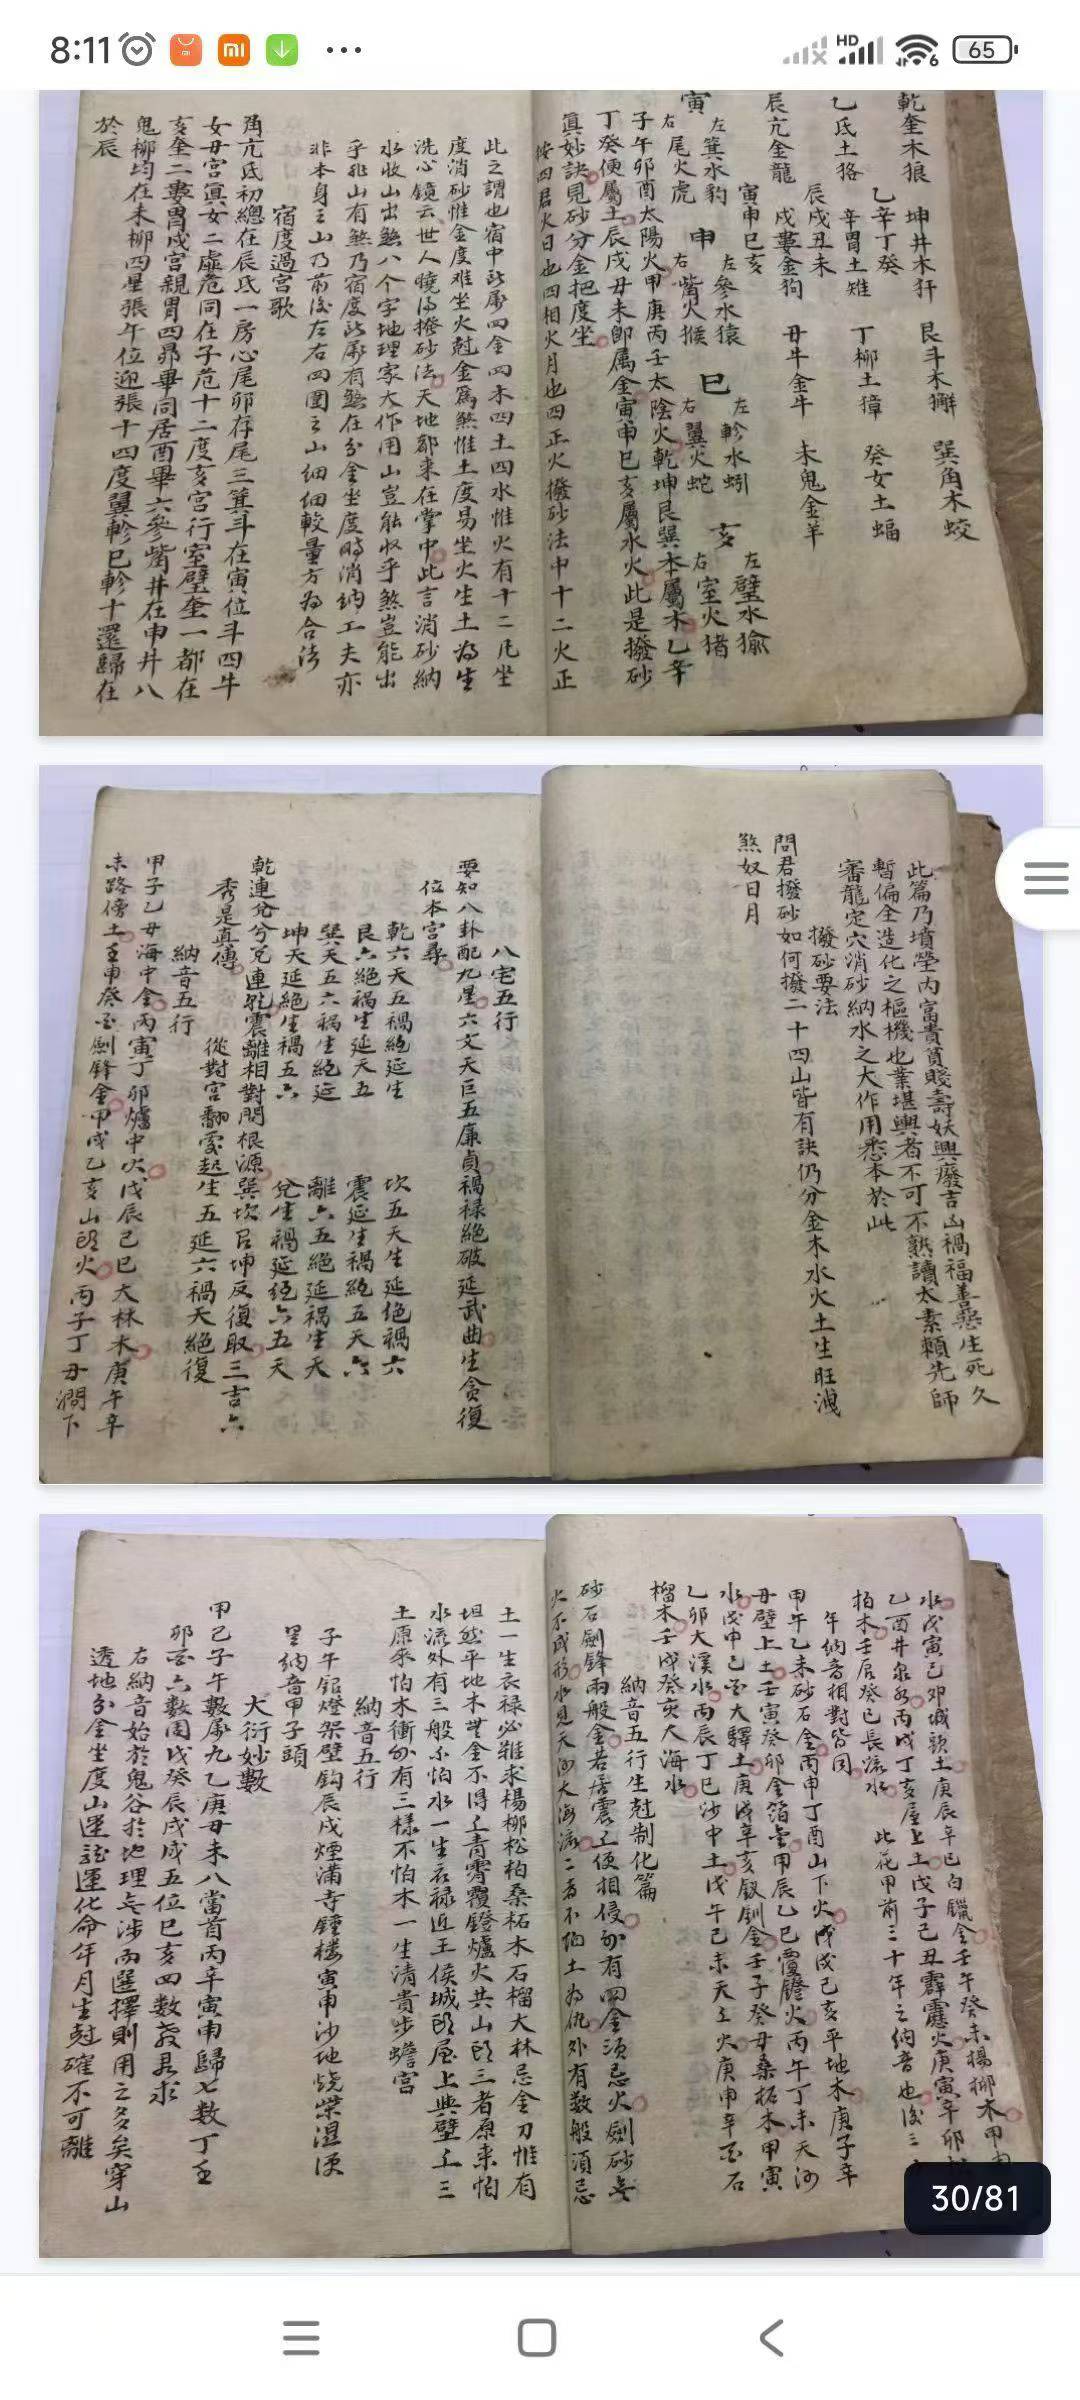 8:11
HD
6
65
乾奎木狼 坤井木犴 艮斗木獬 巽角木蛟
乙辛丁癸
乙氐土狢 辛胃土雉 丁柳土獐 癸女土蝠
辰戌丑未
辰亢金龍 戌婁金狗 丑牛金牛 未鬼金羊
寅申巳亥
寅 左箕水豹 右尾火虎 申 左參水猿 右觜火猴 巳 左軫水蚓 右翼火蛇 亥 左璧水㺄 右室火猪
子午卯酉太陽火甲庚丙壬太陰火乾坤艮巽本屬木乙辛
丁癸便屬土辰戌丑未卽属金寅申巳亥屬水火此是撥砂
真妙訣見砂分金把度坐
按四君火日也四相火月也四正火撥砂法中十二火正
此之謂也宿中所屬四金四木四土四水惟火有十二凡坐
度消砂惟金度难坐火尅金為煞惟土度易坐火生土為生
洗心鏡云世人曉得撥砂法天地都来在掌中此言消砂納
水收山出煞八个字地理家大作用山豈能收乎煞豈能出
乎非山有煞乃宿度所屬有煞在分金坐度時消納工夫亦
非本身王山乃前後左右四圍之山细细較量方為合法
宿度過宮歌
角亢氐初總在辰氐一房心尾卯存尾三箕斗在寅位斗四牛
女丑宮眞女二虛危同在子危十二度亥宮行室璧奎一都在
亥奎二婁胃戌宮親胃四昴畢同居酉畢六參觜井在申井八
鬼柳均在未柳四星張午位迎張十四度翼軫巳軫十還歸在
於辰
此篇乃墳塋内富貴貧賤壽妖興廢吉凶禍福善惡生死久
暫偏全造化之樞機也業堪輿者不可不熟讀太素賴先師
審龍定穴消砂納水之大作用悉本於此
撥砂要法
問君撥砂如何撥二十四山皆有訣仍分金木水火土生旺洩
煞奴日月
八宅五行
要知八卦配九星六文天巨五廉貞禍禄絶破延武曲生貪復
位本宮尋
乾六天五禍絶延生 坎五天生延绝禍六
艮六絶禍生延天五 震延生禍絕五天六
巽天五六禍生絶延 離六五絕延禍生天
坤天延絕生禍五六 兌生禍延絕六五天
乾連兌兮兌連乾震離相對問根源巽坎艮坤反復取三吉六
秀是真傳 從對宮翻变起生五延六禍天絕復
納音五行
甲子乙丑海中金丙寅丁卯爐中火戊辰己巳大林木庚午辛
未路傍土壬申癸酉劍鋒金甲戌乙亥山頭火丙子丁丑澗下
水戊寅己卯城頭土庚辰辛巳白鑞金壬午癸未楊柳木甲申
乙酉井泉水丙戌丁亥屋上土戊子己丑霹靂火庚寅辛卯松
柏木壬辰癸巳長流水 此花甲前三十年之納音也後三
年納音相對皆同
甲午乙未砂石金丙申丁酉山下火戊戌己亥平地木庚子辛
丑壁上土壬寅癸卯金箔金甲辰乙巳覆鐙火丙午丁未天河
水戊申己酉大驛土庚戌辛亥釵釧金壬子癸丑桑柘木甲寅
乙卯大溪水丙辰丁巳沙中土戊午己未天上火庚申辛酉石
榴木壬戌癸亥大海水
納音五行生尅制化篇
砂石劍鋒兩般金若居震上便相侵外有四金須忌火劍砂無
火不成形水見天河大海流二者不怕土為仇外有数般須忌
土一生衣禄必難求楊柳松柏桑柘木石榴大林忌金刀惟有
坦然平地木無金不得上青霄覆鐙爐火共山頭三者原来怕
水流外有三般不怕水一生衣禄近王侯城頭屋上與壁上三
土原來怕木衝外有三樣不怕木一生清貴步蟾宮
納音五行
子午銀燈架壁鈎辰戌煙滿寺鐘楼寅申沙地燒柴濕便
是納音甲子頭
大衍妙數
甲己子午數屬九乙庚丑未八當首丙辛寅申歸七数丁壬
卯酉六數周戊癸辰戌五位巳亥四數君求
右納音始於鬼谷於地理無涉而選擇則用之多矣穿山
透地分金坐度山運設運化命年月生尅確不可離
30/81